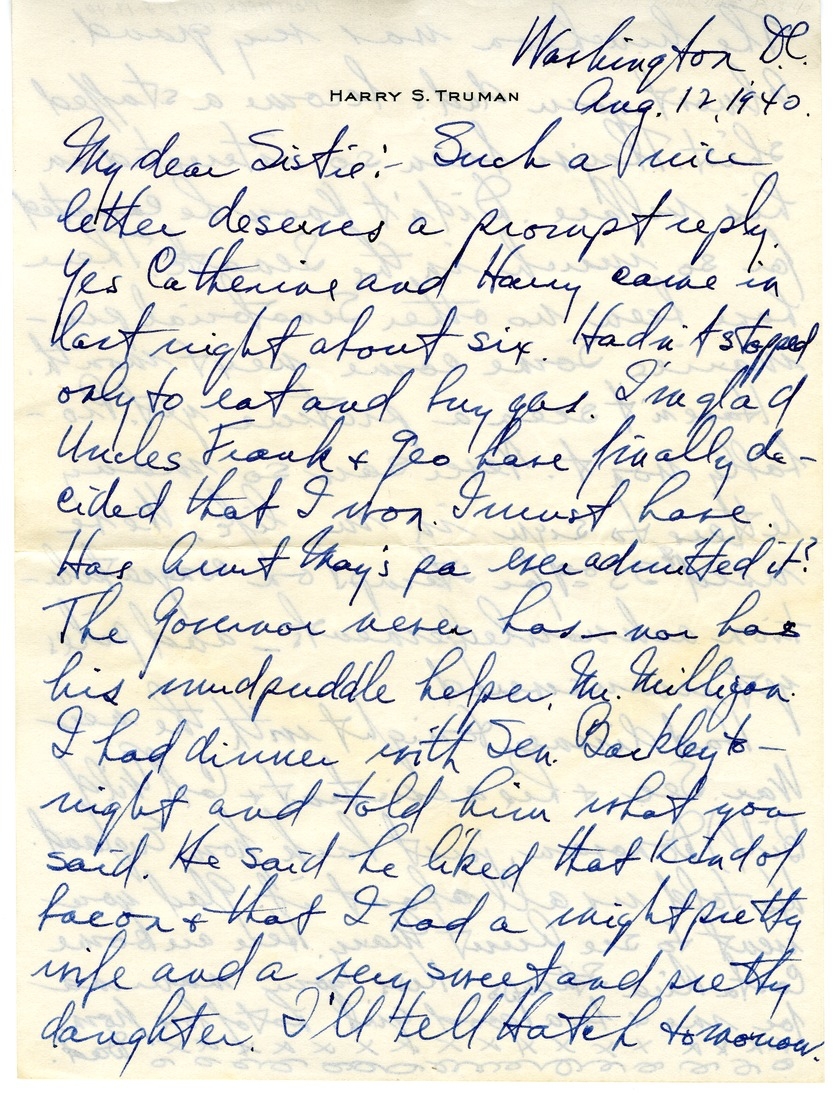 Washington, D.C.
HARRY S. TRUMAN
Aug. 12, 1940.
My dear Sistie:- Such a nice
letter deserves a prompt reply.
Yes Catherine and Harry came in
last night about six. Hadn't stopped
only to eat and buy gas. I'm glad
Uncles Frank & Geo have finally de-
cided that I won. I must have.
Has Aunt May's pa ever admitted it?
The Governor never has - nor has
his mudpuddle helper, Mr. Milligan.
I had dinner with Sen. Barkley to-
night and told him what you
said. He said he liked that kind of
bacon & that I had a might pretty
wife and a very sweet and pretty
daughter. I'll tell Hatch tomorrow.